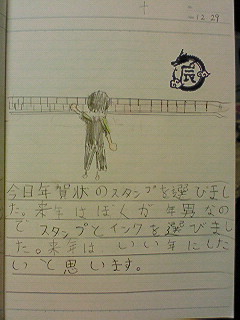 12.29
辰
今日年賀状のスタンプを選びまし
た。来年はぼくが年男なの
でスタンプとインクを選びまし
た。来年はいい年にした
いと思います。